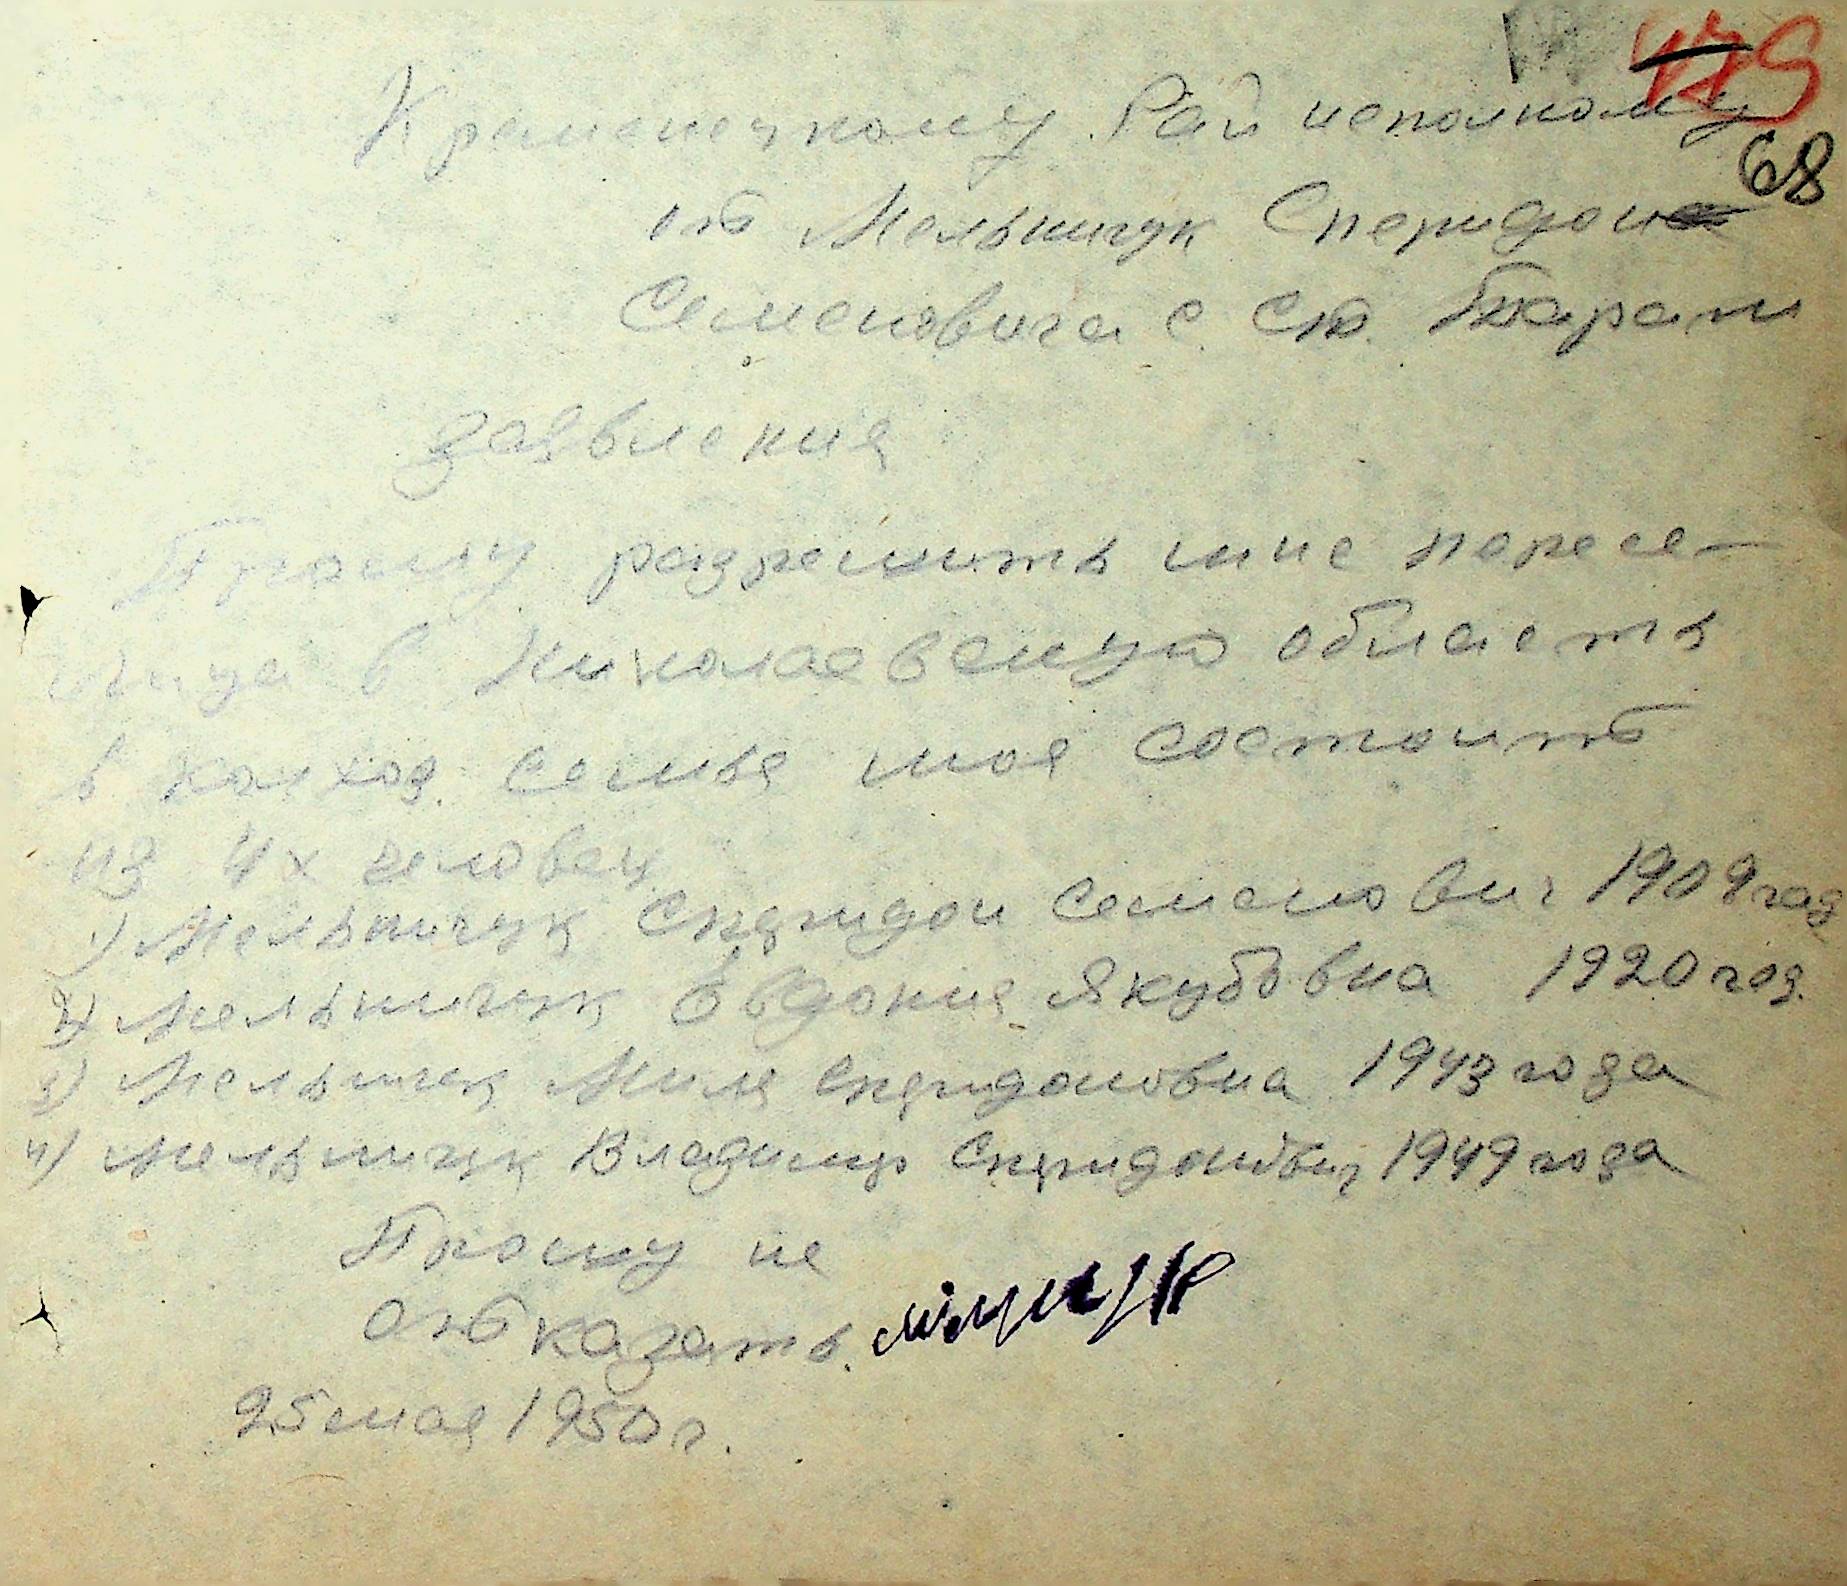 179
68
Кременецкому Рай исполкому
от Мельничук Сперидона
Семеновича с ст. Тараж
заявления
Прошу разрешить мне пересе-
лица в Николаевскую область
в колхоз. семья моя состоить
из 4х человек
1) Мельничук Сперидон Семенович 1909 год
2) Мельничук Евдокия Якубовна 1920 год.
3) Мельничук Миля Сперидоновна 1943 года
4) Мельничук Владимир Сперидонович 1949 года
Прошу не
отказать.
25 мая 1950 г.